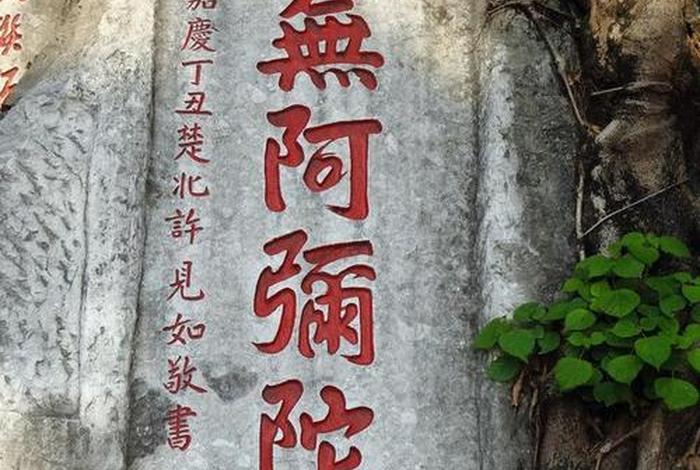 無阿彌陀
嘉慶丁丑楚北許見如敬書